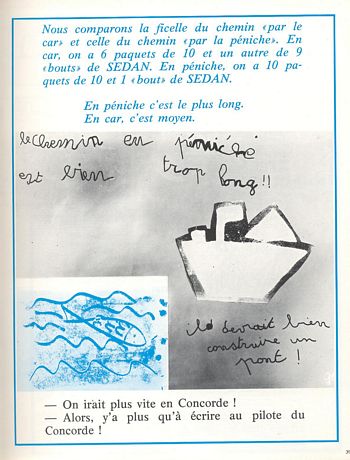 Nous comparons la ficelle du chemin «par le
car» et celle du chemin «par la péniche». En
car, on a 6 paquets de 10 et un autre de 9
«bouts» de SEDAN. En péniche, on a 10 pa-
quets de 10 et 1 «bout» de SEDAN.
En péniche c'est le plus long.
En car, c'est moyen.
le chemin en péniche
est bien trop long!!
ils devrait bien
construire un
pont !
— On irait plus vite en Concorde !
— Alors, y'a plus qu'à écrire au pilote du
Concorde !